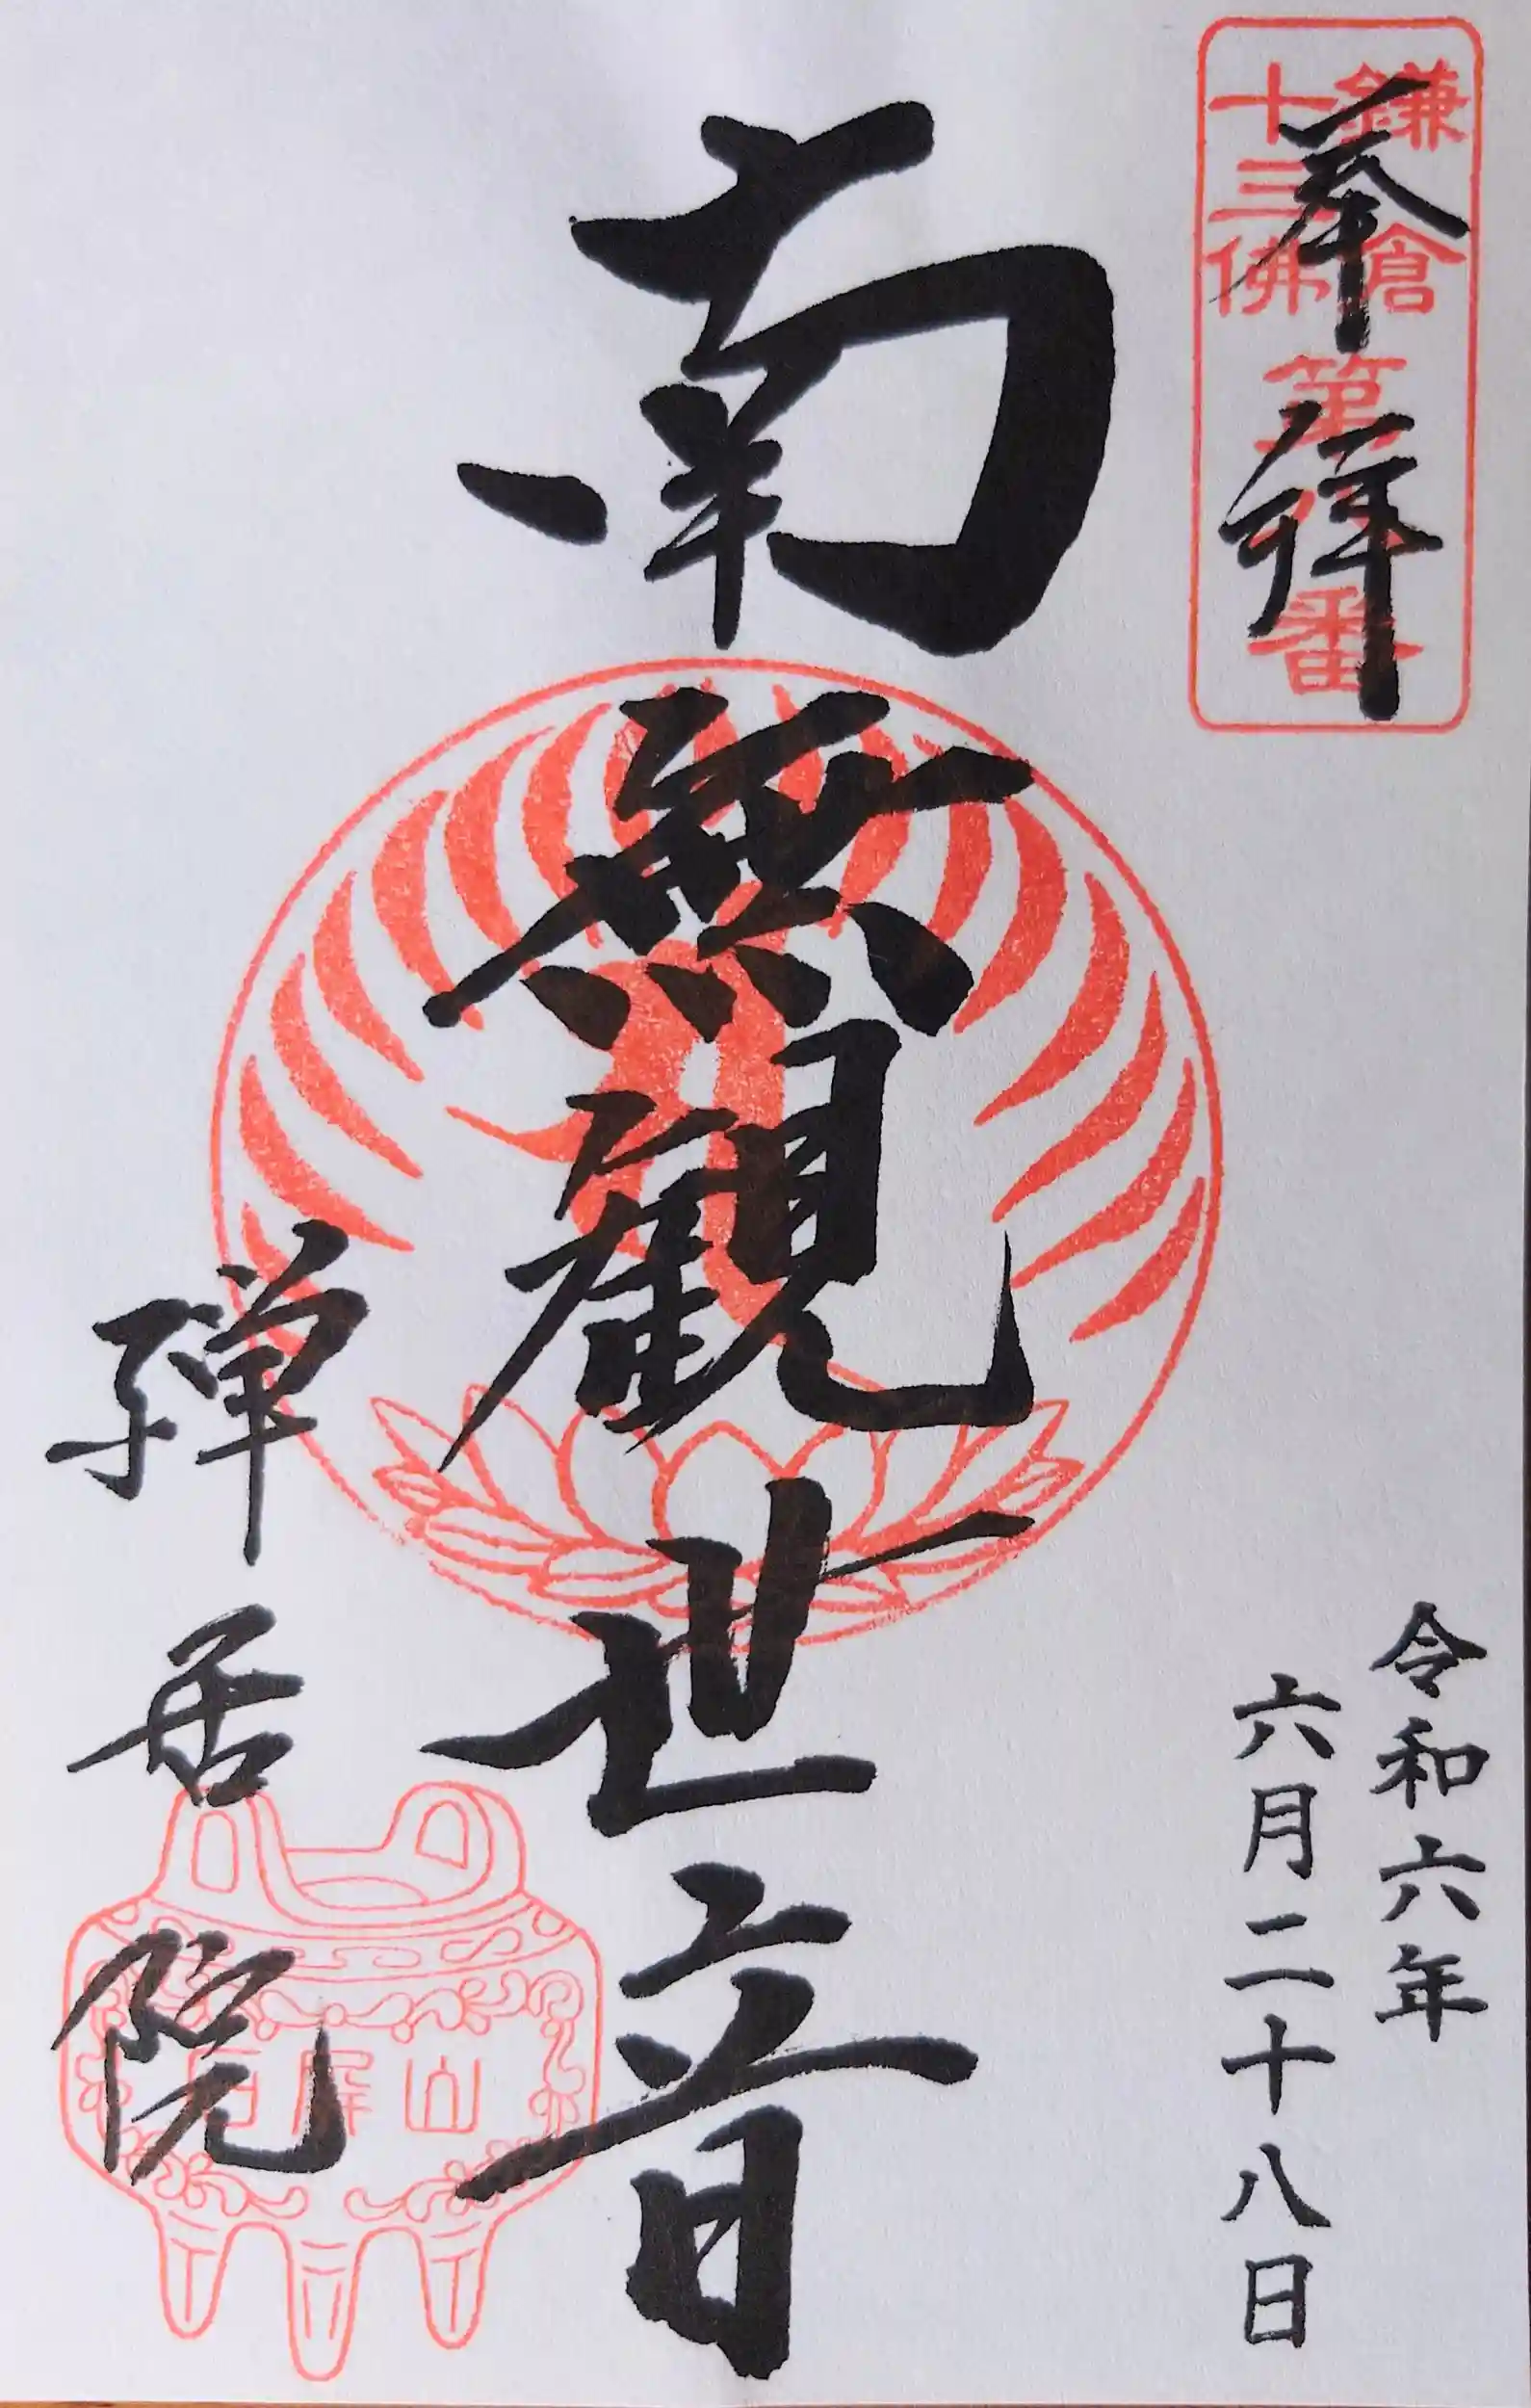 奉拝
鎌倉
十三佛
第
番
令和六年
六月二十八日
南無観世音
禅居院
石屏山